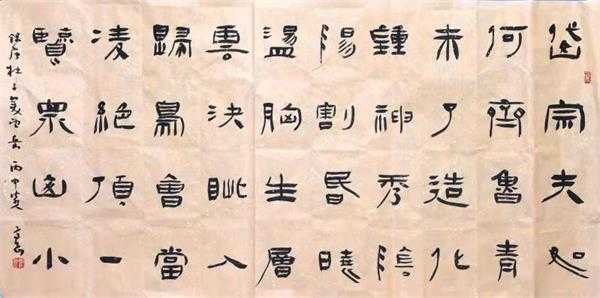 岱宗夫如
何齊魯青
未了造化
鍾神秀陰
陽割昏曉
盪胸生層
雲決眦入
歸鳥會當
凌絕頂一
覽衆山小
錄唐杜子美望岳 丙申